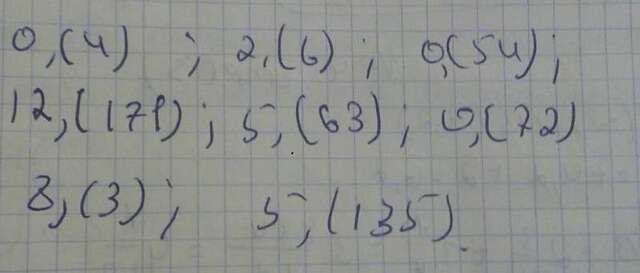 0,(4) ; 2,(6) ; 0,(54) ;
12,(171) ; 5,(63) ; 0,(72)
8,(3) ; 5,(135)